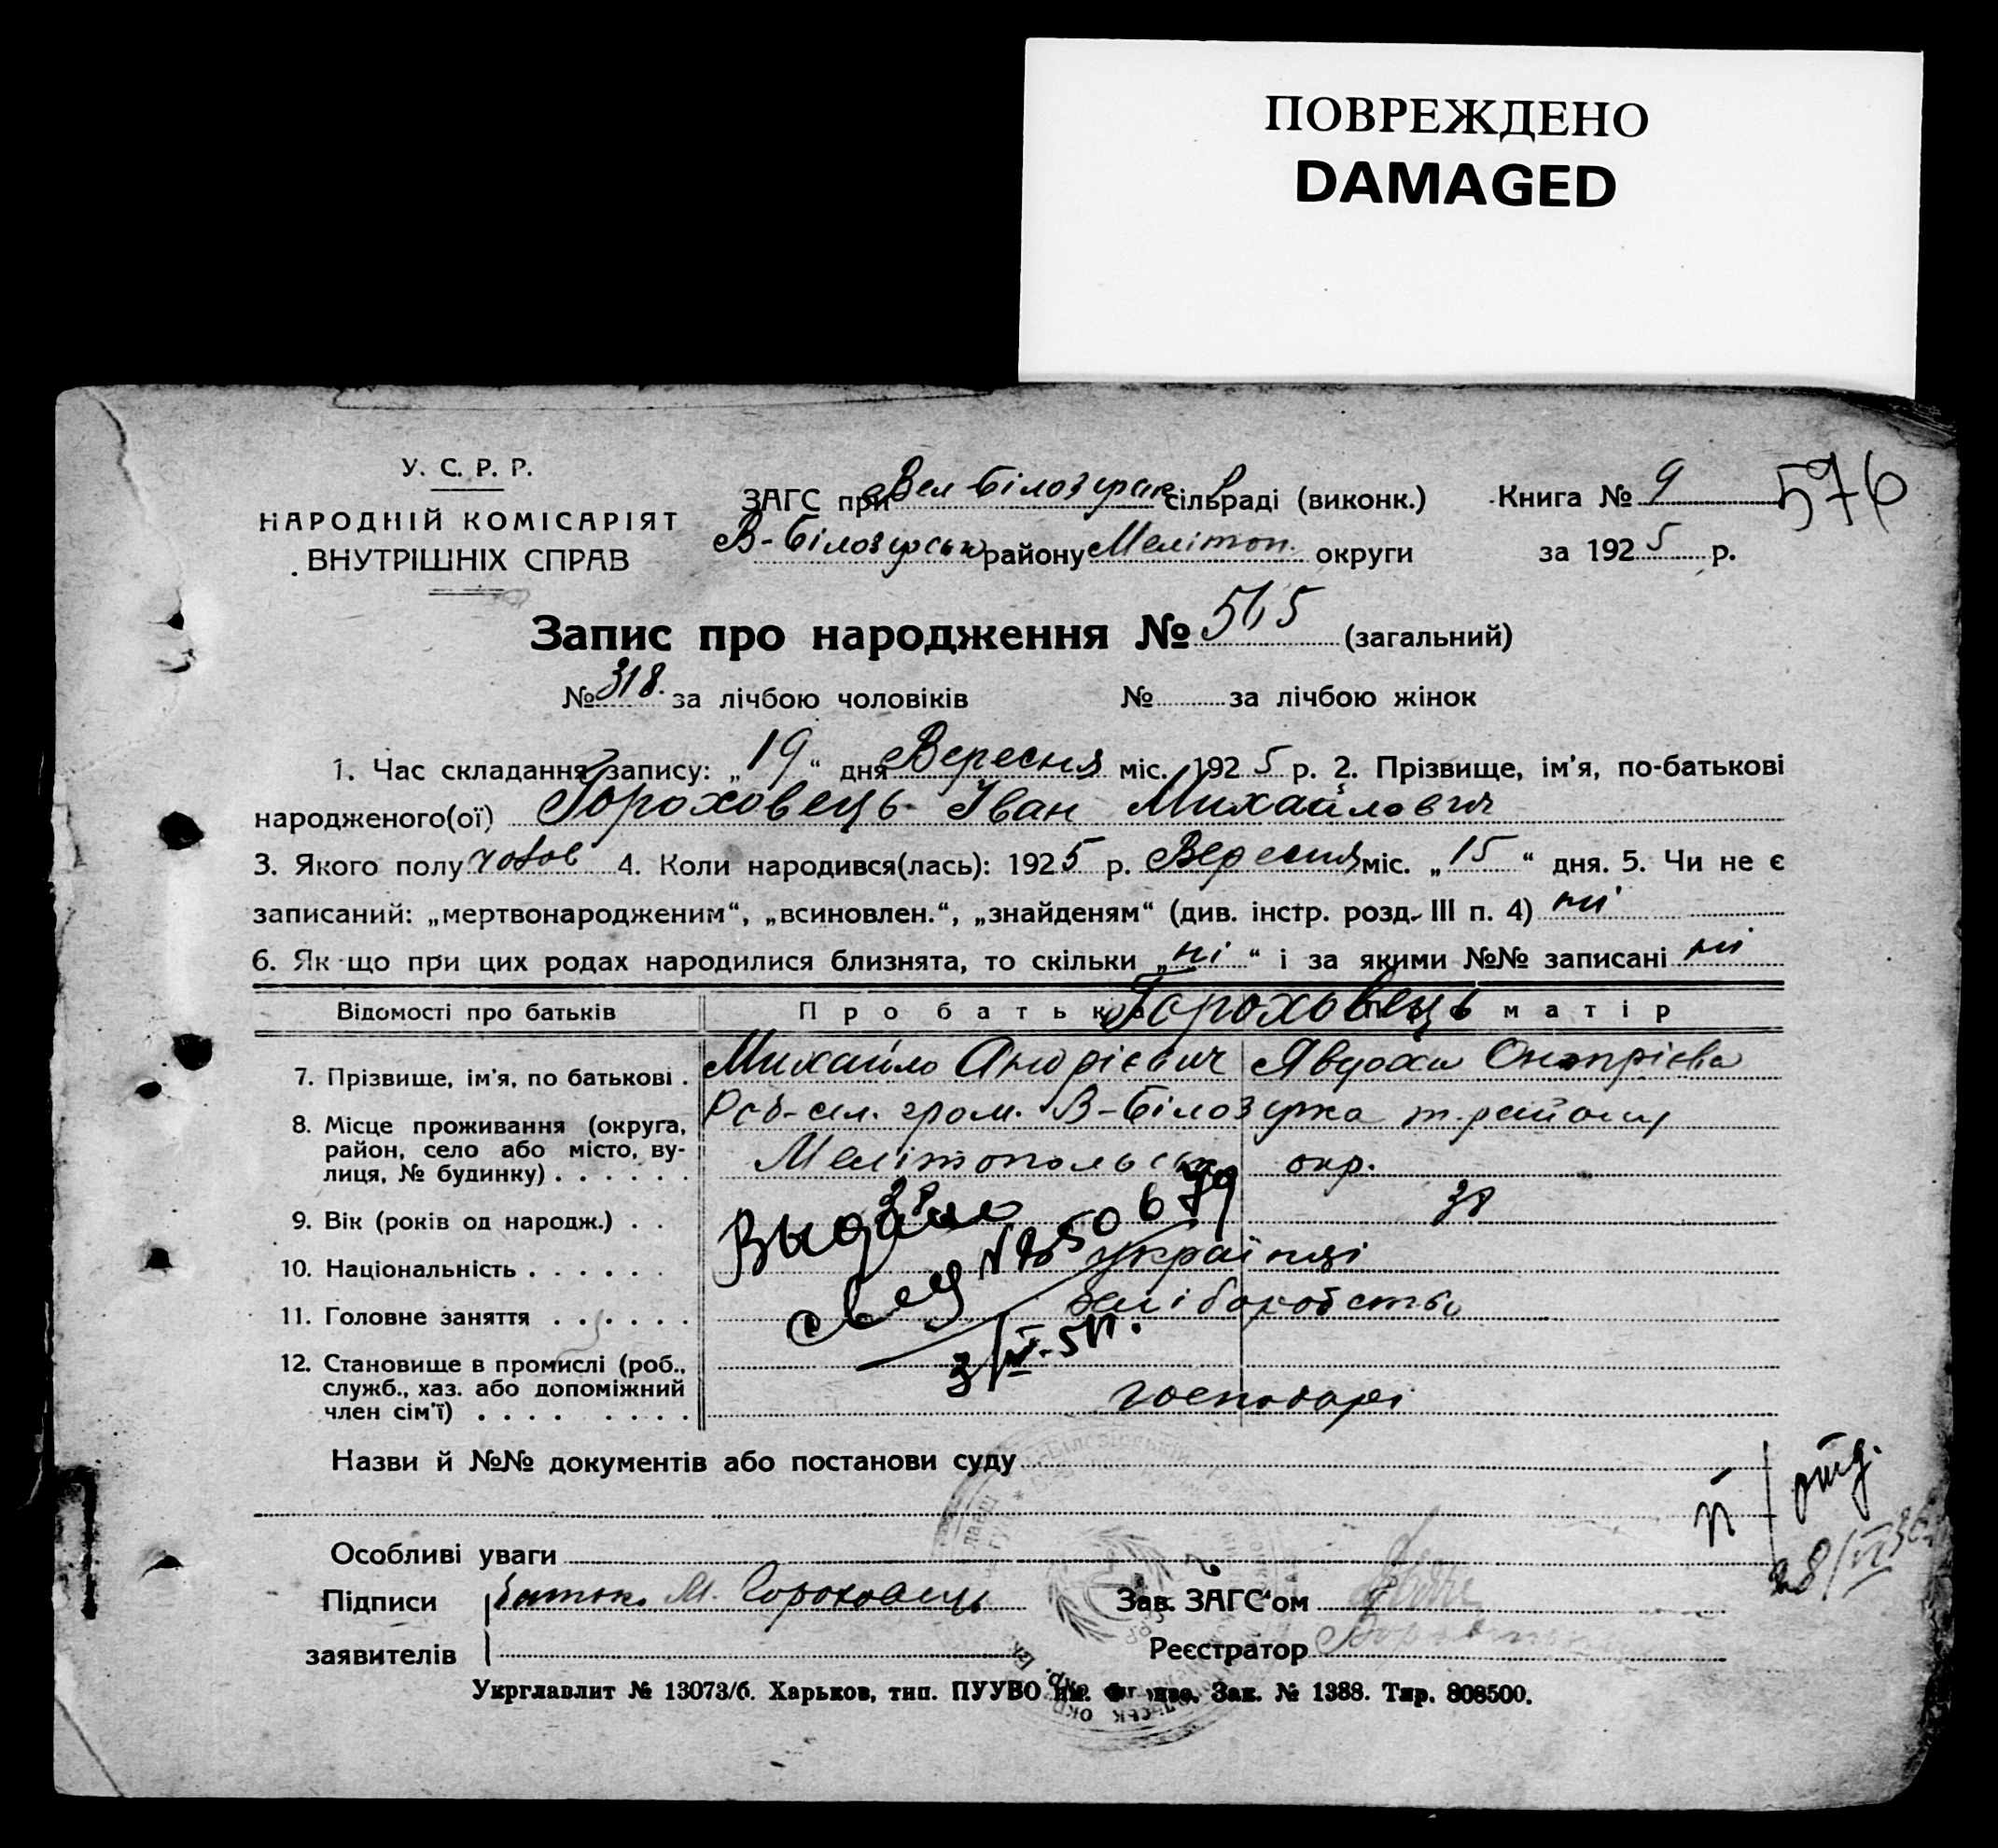 ПОВРЕЖДЕНО
DAMAGED
У. С. Р. Р.
НАРОДНІЙ КОМІСАРІЯТ
ВНУТРІШНІХ СПРАВ
ЗАГС при Вел Білозірск сільраді (виконк.) Книга № 9 576
В-Білозірськ району Мелітоп. округи за 1925 р.
Запис про народження № 565 (загальний)
№ 318. за лічбою чоловіків № за лічбою жінок
1. Час складання запису: „19“ дня Вересня міс. 1925 р. 2. Прізвище, ім'я, по-батькові
народженого(ої) Гороховець Іван Михайлович
3. Якого полу чолов 4. Коли народився(лась): 1925 р. Вересня міс. „15“ дня. 5. Чи не є
записаний: „мертвонародженим“, „всиновлен.“, „знайденям“ (див. інстр. розд. III п. 4) ні
6. Як що при цих родах народилися близнята, то скільки „ні“ і за якими №№ записані ні
Відомості про батьків Про батька Гороховець матір
7. Прізвище, ім'я, по батькові . Михайло Андрієвич Явдоха Онопрієва
8. Місце проживання (округа, район, село або місто, вулиця, № будинку) . . . . . . гром. В-Білозірка т. району
Мелітопольськ окр.
9. Вік (років од народж.) . . 38 38
Выдано
10. Національність . . . . . . українці
свид №50679
11. Головне заняття . . . . . . хліборобство
12. Становище в промислі (роб., служб., хаз. або допоміжний член сім'ї) . . . . . . . . господарі
Назви й №№ документів або постанови суду
п/отд.
Особливі уваги
28/VI
Підписи Батько М. Гороховець Зав. ЗАГС'ом
заявителів Реєстратор
Укрглавлит № 13073/б. Харьков, тип. ПУУВО им. Фрунзе. Зак. № 1388. Тир. 808500.